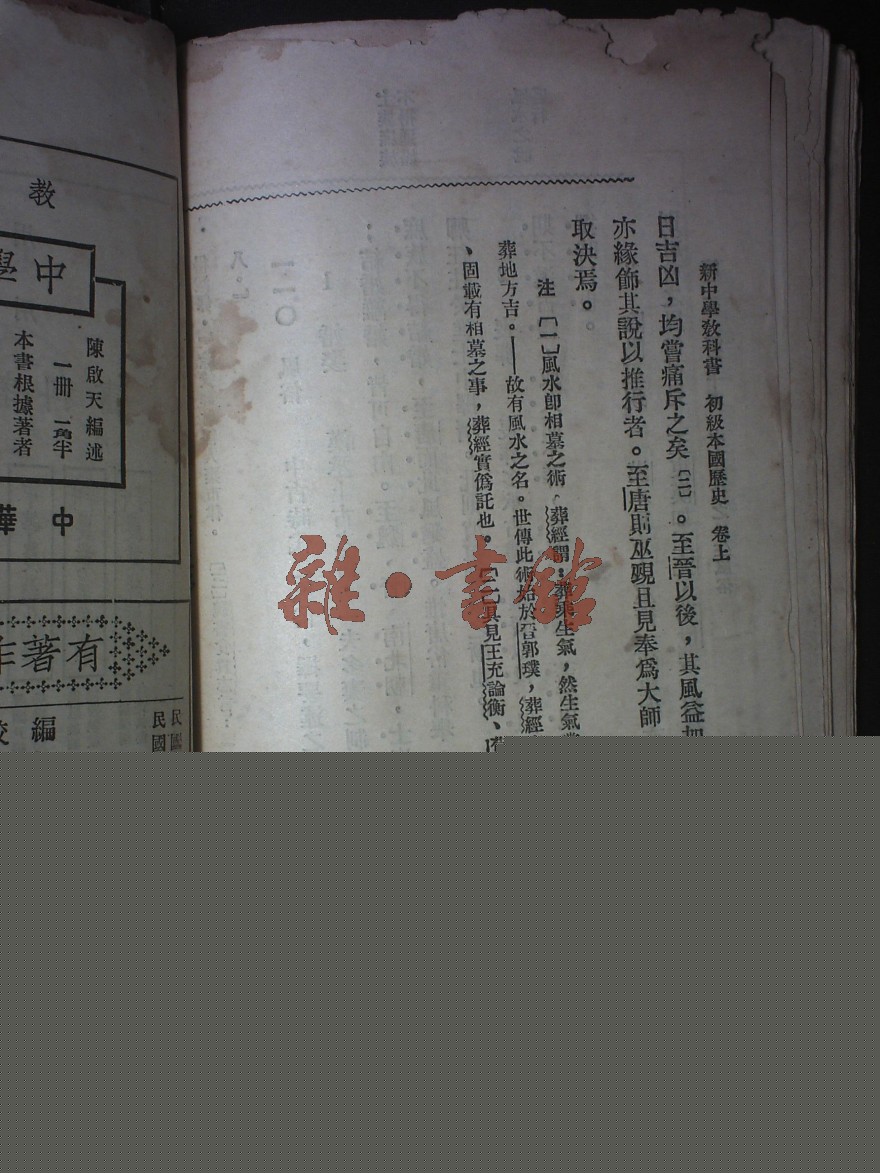 新中學教科書　初級本國歷史　卷上
日吉凶，均嘗痛斥之矣〔二〕。至晉以後，其風益加
亦緣飾其說以推行者。至唐則巫覡且見奉爲大師
取決焉。
注　〔一〕風水卽相墓之術。葬經謂：葬乘生氣，然生氣
葬地方吉。——故有風水之名。世傳此術始於晉郭璞，葬經
、固載有相墓之事，葬經實僞託也。〔二〕具見王充論衡、
教
中學
陳啟天編述
一冊　一角半
本書根據著者
中華
有著作
編
校
民國
民國
雜·書館